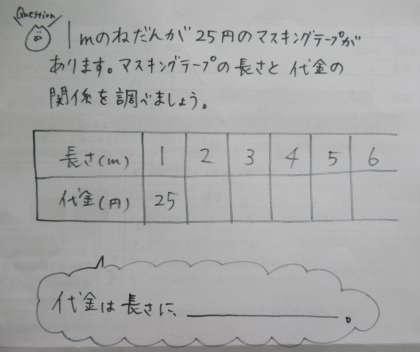 Question
1mのねだんが25円のマスキングテープが
あります。マスキングテープの長さと代金の
関係を調べましょう。
長さ(m) 1 2 3 4 5 6
代金(円) 25
代金は長さに、＿＿＿＿＿＿＿＿。